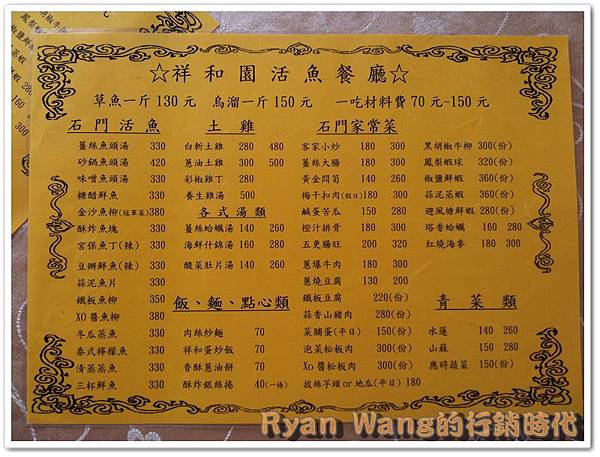 ☆祥和園活魚餐廳☆
草魚一斤 130 元 烏溜一斤 150 元 一吃材料費 70 元~150 元
石門活魚
薑絲魚頭湯 330
砂鍋魚頭湯 420
味噌魚頭湯 330
糖醋鮮魚 330
金沙魚柳(冠軍菜)380
酥炸魚塊 330
宮保魚丁(辣) 330
豆瓣鮮魚(辣) 330
蒜泥魚片 330
鐵板魚柳 350
XO 醬魚柳 380
冬瓜蒸魚 330
泰式檸檬魚 330
清蒸蒸魚 330
三杯鮮魚 330
土雞
白斬土雞 280 480
蔥油土雞 300 500
彩椒雞丁 280
養生雞湯 500
各式湯類
薑絲蛤蠣湯 140 260
海鮮什錦湯 160 280
酸菜肚片湯 140 260
飯、麵、點心類
肉絲炒麵 70
祥和蛋炒飯 70
香酥蔥油餅 70
酥炸銀絲捲 40(一條)
石門家常菜
客家小炒 180 300
薑絲大腸 180 300
黃金悶筍 140 260
梅干扣肉(假日) 180 300
鹹蛋苦瓜 150 280
橙汁排骨 180 300
五更腸旺 200 320
蔥爆牛肉 180 300
蔥燒豆腐 180 300
鐵板豆腐 220(份)
蒜香山豬肉 280(份)
菜脯蛋(平日) 150(份)
泡菜松板肉 300(份)
XO 醬松板肉 300(份)
拔絲芋頭 or 地瓜(平日) 180
黑胡椒牛柳 300(份)
鳳梨蝦球 320(份)
椒鹽鮮蝦 360(份)
蒜泥蒸蝦 360(份)
避風塘鮮蝦 280(份)
塔香蛤蠣 160 280
紅燒海參 180 300
青菜類
水蓮 140 260
山蘇 150 280
應時蔬菜 150(份)
Ryan Wang的行銷時代